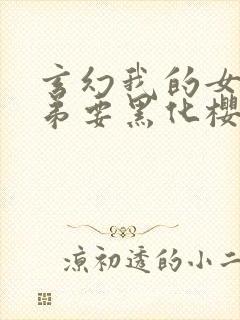 玄幻我的女
弟要黑化樱
凉初透的小二